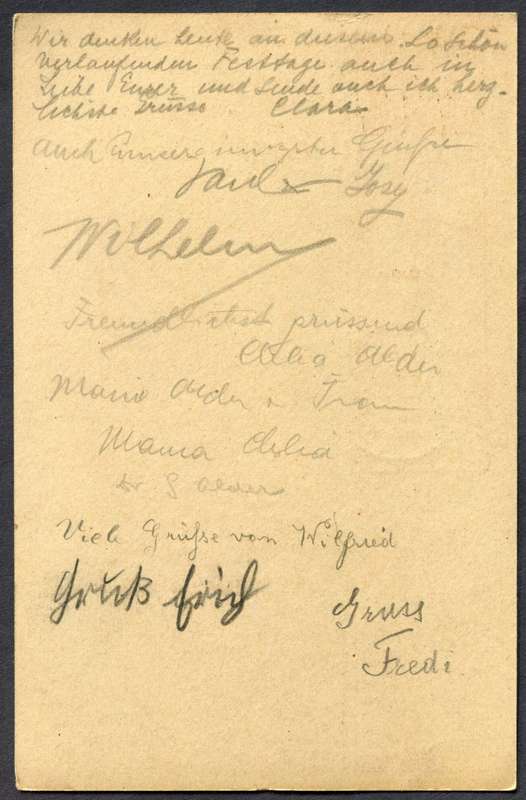 Wir denken heute an diesem so schön
verlaufenden Festtage auch in
Liebe Eurer und sende auch ich herz-
lichste Grüsse Clara
Auch Grüsse
Josy
Wilhelm
Freundlichst grüssend
Alder
Mario Alder u Frau
Mama
Dr Alder
Viele Grüsse von Wilfried
Gruß Erich
Gruss
Fredi